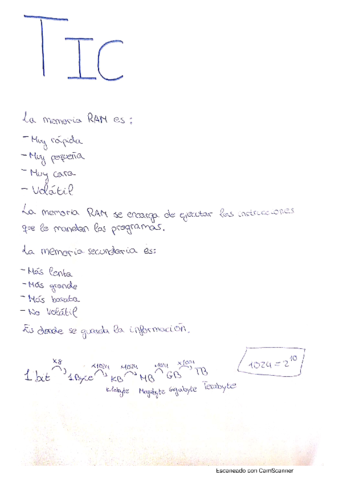 TIC
La memoria RAM es:
- Muy rápida
- Muy pequeña
- Muy cara
- Volátil
La memoria RAM se encarga de ejecutar las instrucciones
que le mandan los programas.
La memoria secundaria es:
- Más lenta
- Más grande
- Más barata
- No Volátil
Es donde se guarda la información.
x8 x1024 x1024 x1024 x1024
1 bit 1 Byte KB MB GB TB
Kilobyte Megabyte Gigabyte Terabyte
1024 = 2^10
Escaneado con CamScanner